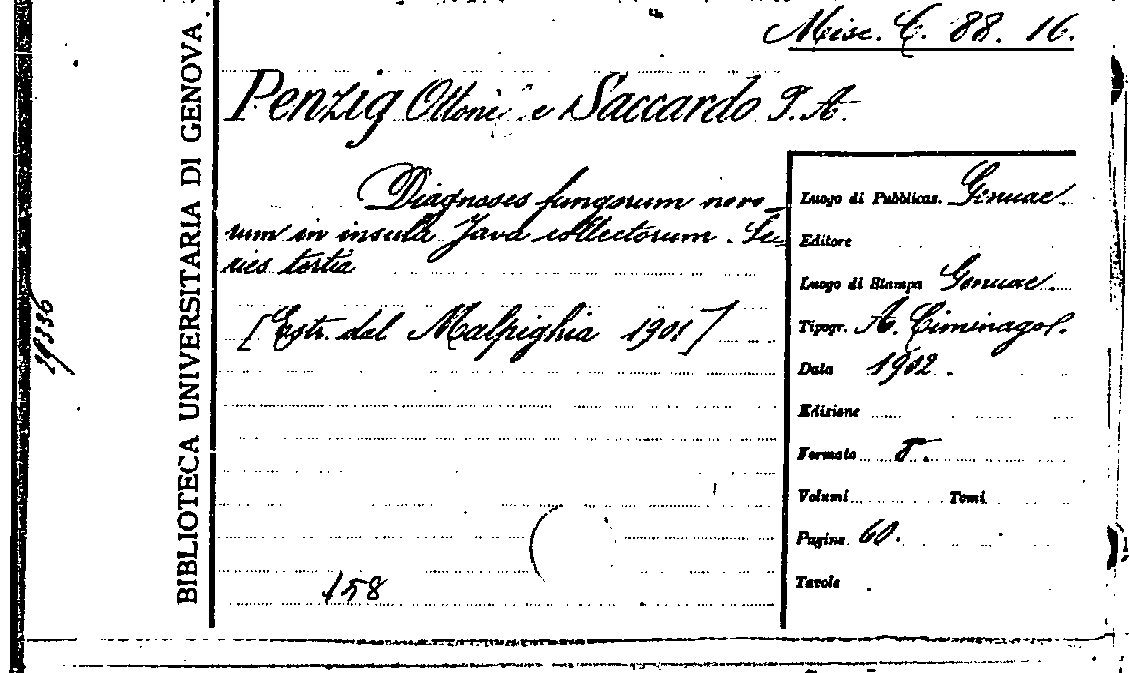 Misc. C. 88. 16.
Penzig Ottone e Saccardo P. A.
Diagnoses fungorum novo-
rum in insula Java collectorum. Se-
ries tertia
[Estr. dal Malpighia 1901]
158
BIBLIOTECA UNIVERSITARIA DI GENOVA
Luogo di Pubblicaz. Genuae.
Editore
Luogo di Stampa Genuae.
Tipogr. A. Ciminago.
Data 1902.
Edizione
Formato 8.
Volumi Tomi
Pagine 60.
Tavole